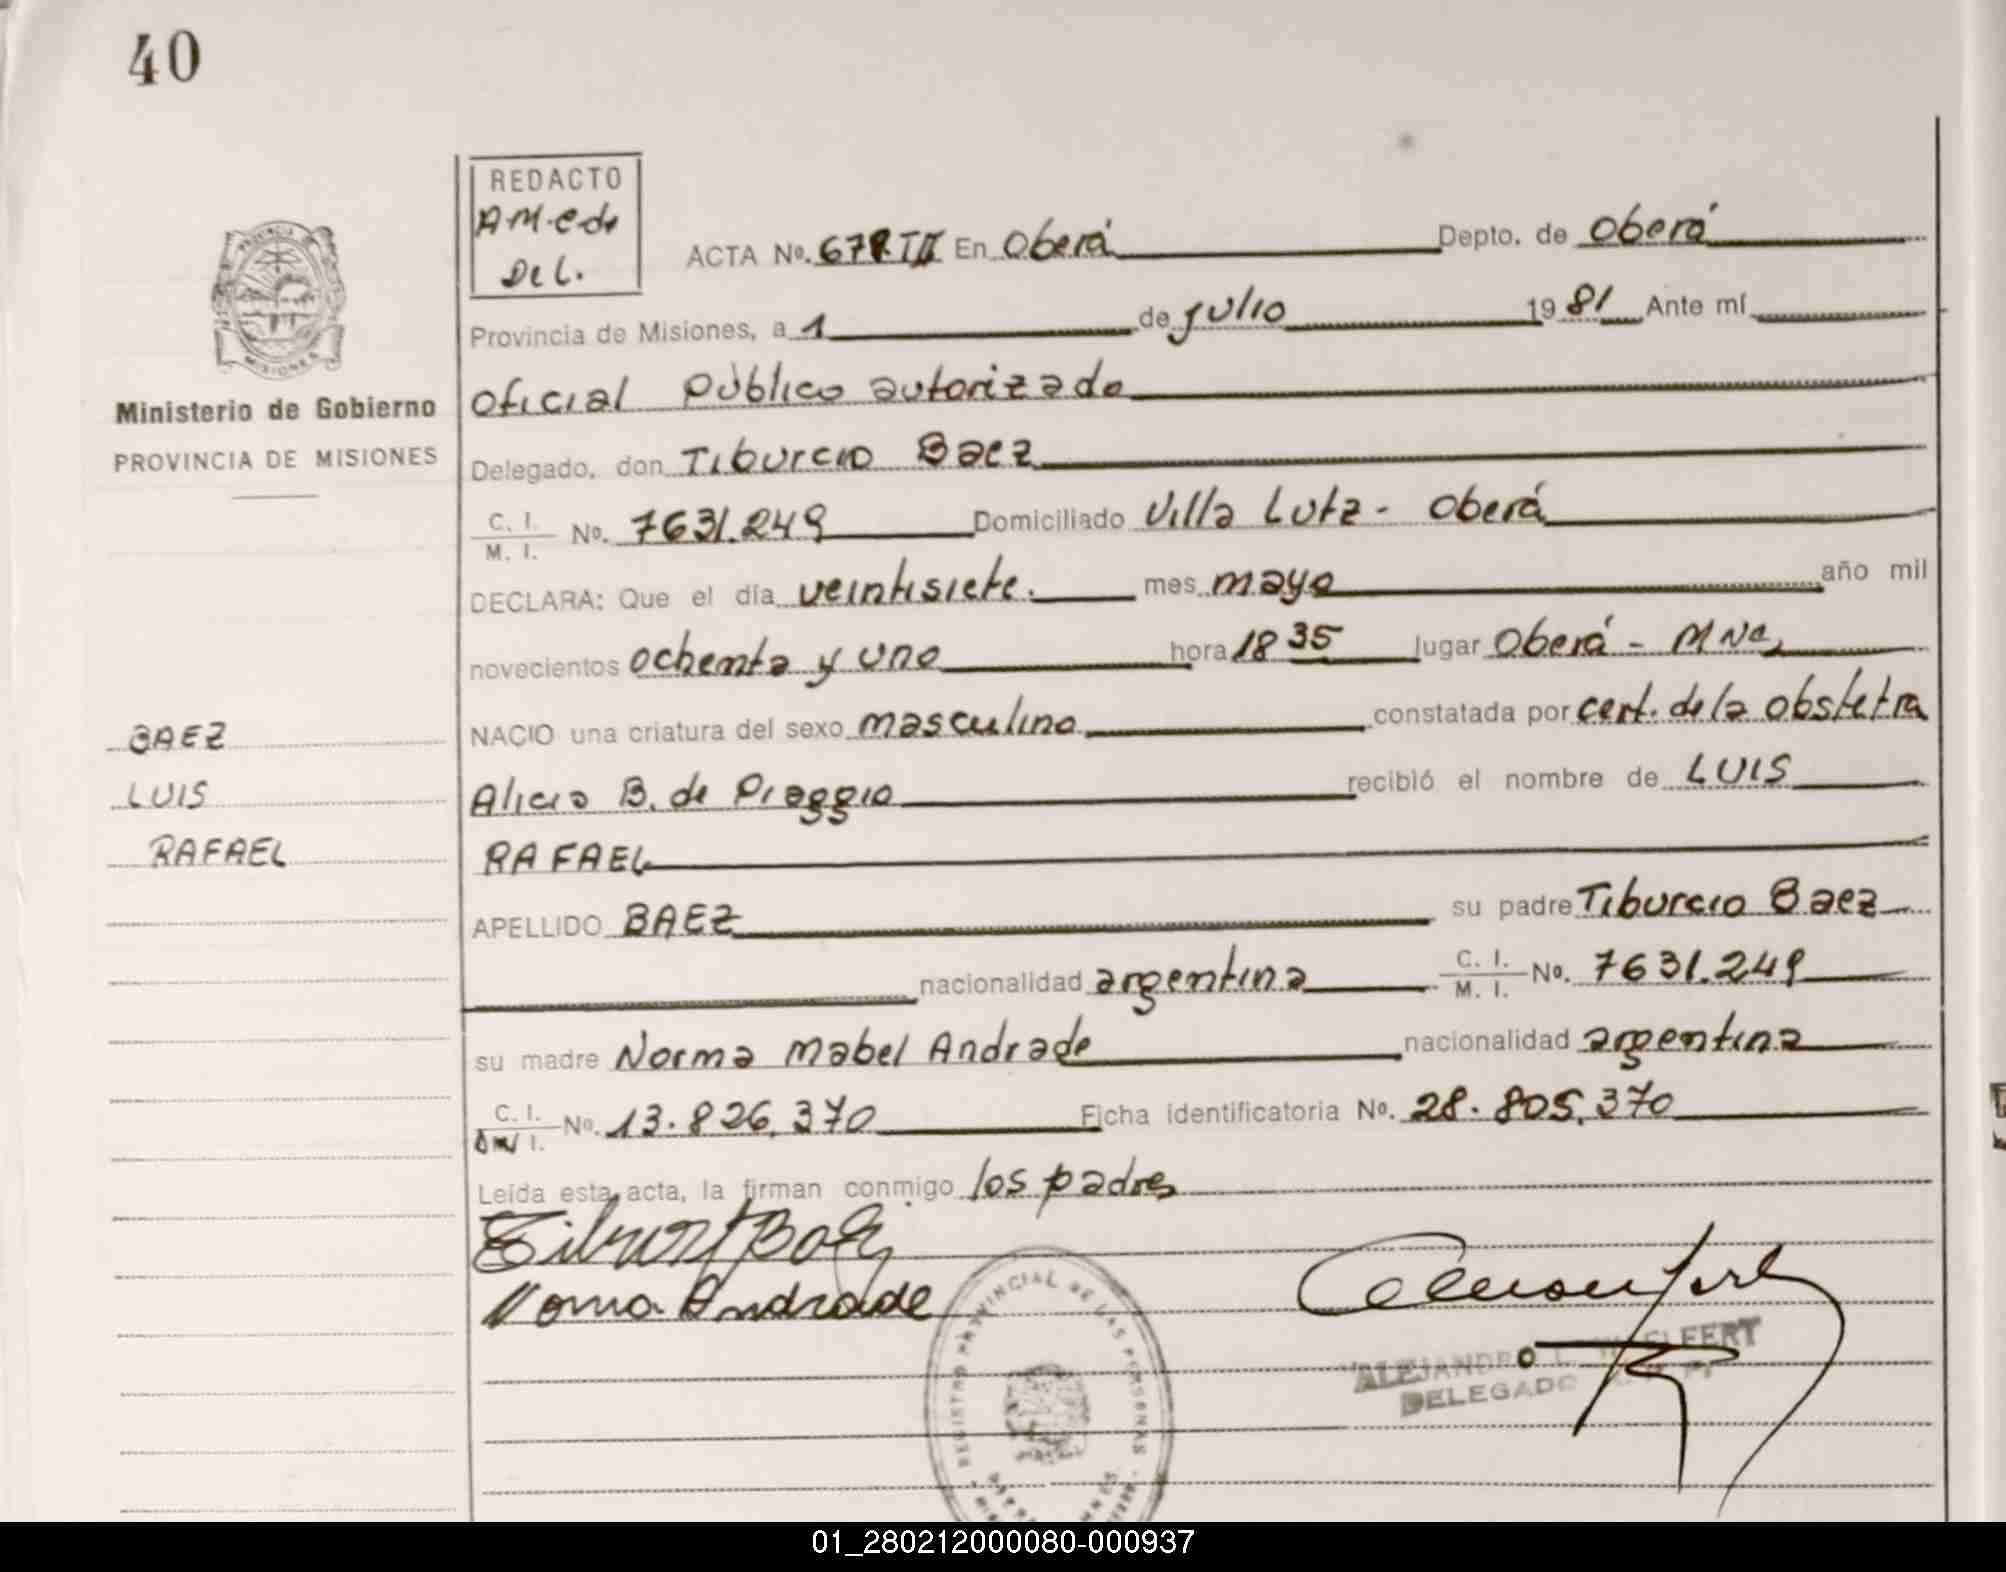 40
REDACTO
A.M. e de
DEL.
ACTA No. 678 TII En Oberá Depto. de Oberá
Provincia de Misiones, a 1 de julio 1981 Ante mí
Oficial Público autorizado
Delegado, don Tiburcio Baez
C. I.
M. I. No. 7631.249 Domiciliado Villa Lutz - Oberá
DECLARA: Que el día veintisiete. mes mayo año mil
novecientos ochenta y uno hora 18 35 lugar Oberá - Mnes
NACIO una criatura del sexo masculino constatada por cert. de la obstetra
Alicia B. de Piaggio recibió el nombre de LUIS
RAFAEL
APELLIDO BAEZ su padre Tiburcio Baez
nacionalidad argentina C. I.
M. I. No. 7631.249
su madre Norma Mabel Andrade nacionalidad argentina
C. I.
I. No. 13.826.370 Ficha identificatoria No. 28.805.370
Leída esta acta, la firman conmigo los padres
Norma Andrade
ALEJANDRO
DELEGADO
REGISTRO PROVINCIAL DE LAS PERSONAS
PROVINCIA DE
MISIONES
Ministerio de Gobierno
PROVINCIA DE MISIONES
BAEZ
LUIS
RAFAEL
01_280212000080-000937